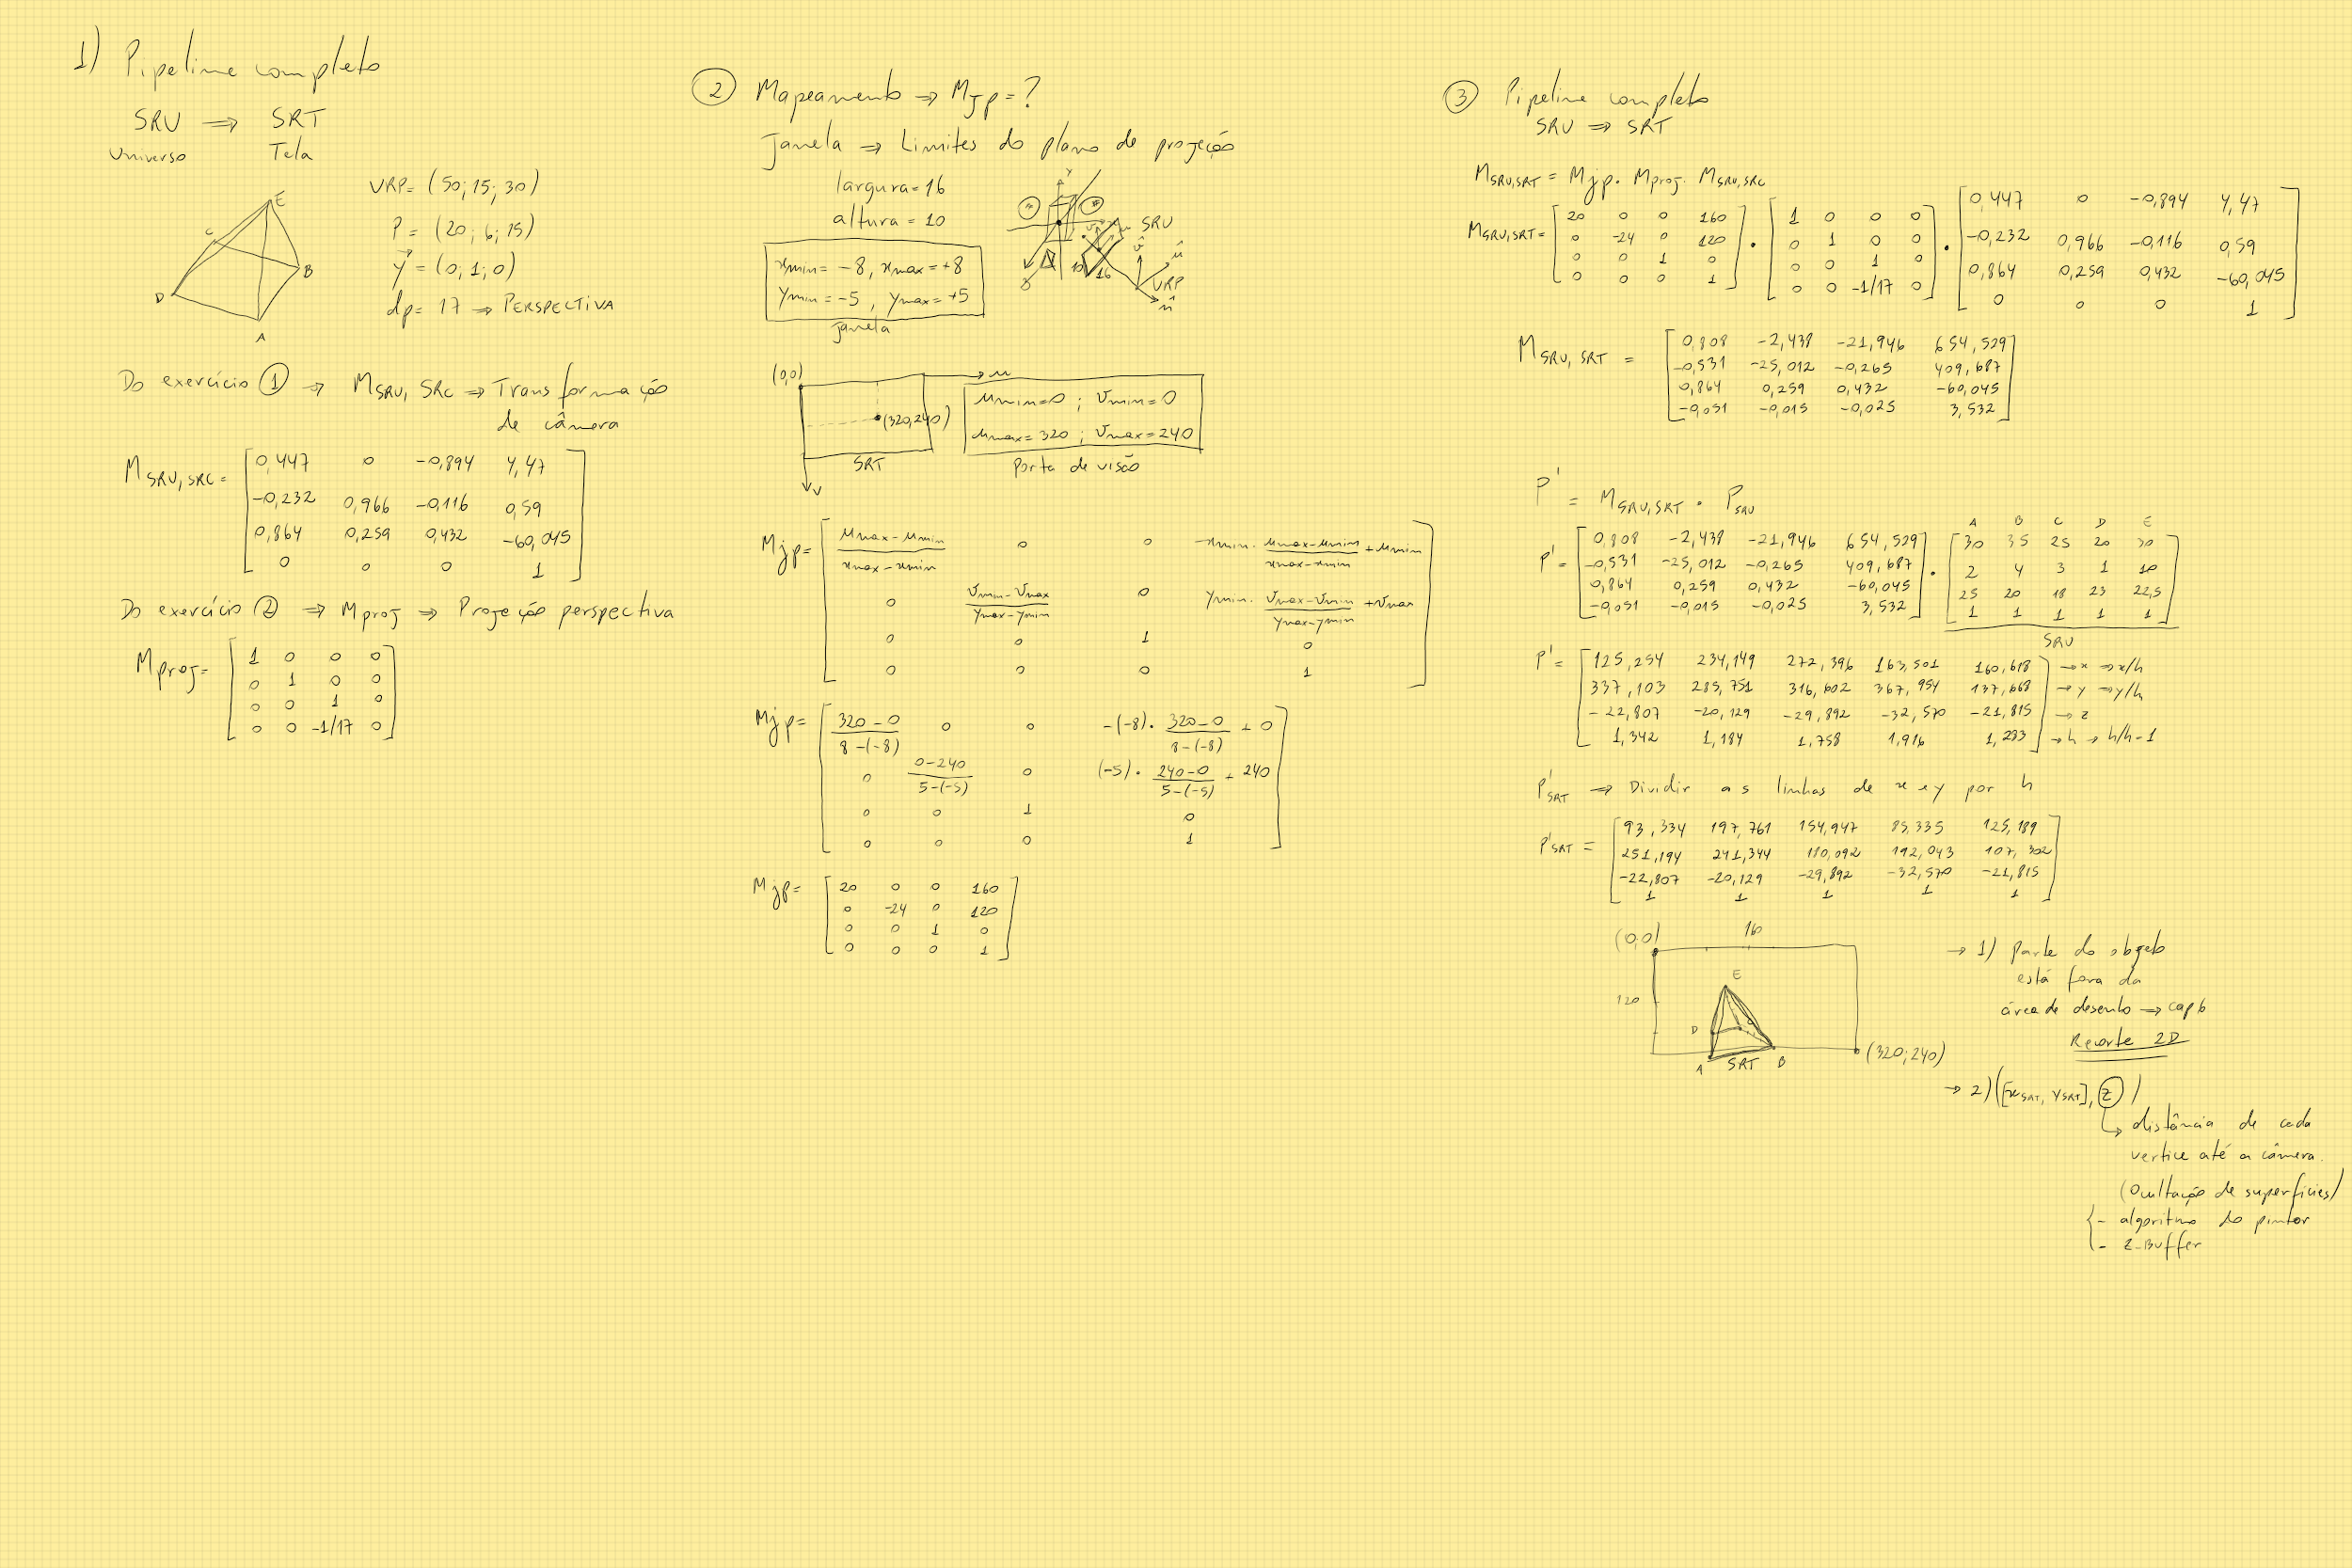 1) Pipeline completo
SRU ⇒ SRT
Universo Tela
E
C
B
D
A
VRP = (50; 15; 30)
P = (20; 6; 15)
Y = (0; 1; 0)
dp = 17 ⇒ PERSPECTIVA
Do exercício ① → M SRU, SRC ⇒ Transformação
de câmera
M SRU, SRC =
0,447 0 -0,894 4,47
-0,232 0,966 -0,116 0,59
0,864 0,259 0,432 -60,045
0 0 0 1
Do exercício ② ⇒ Mproj ⇒ Projeção perspectiva
Mproj =
1 0 0 0
0 1 0 0
0 0 1 0
0 0 -1/17 0
② Mapeamento ⇒ Mjp = ?
Janela ⇒ Limites do plano de projeção
largura = 16
altura = 10
xmin = -8, xmax = +8
ymin = -5, ymax = +5
janela
Y
SRU
10 16
VRP
(0,0)
u
(320,240)
SRT
v
umin = 0 ; vmin = 0
umax = 320 ; vmax = 240
Porta de visão
Mjp =
umax - umin / xmax - xmin 0 0 -xmin . umax - umin / xmax - xmin + umin
0 vmin - vmax / ymax - ymin 0 ymin . vmax - vmin / ymax - ymin + vmax
0 0 1 0
0 0 0 1
Mjp =
320 - 0 / 8 - (-8) 0 0 -(-8) . 320 - 0 / 8 - (-8) + 0
0 0 - 240 / 5 - (-5) 0 (-5) . 240 - 0 / 5 - (-5) + 240
0 0 1 0
0 0 0 1
Mjp =
20 0 0 160
0 -24 0 120
0 0 1 0
0 0 0 1
③ Pipeline completo
SRU ⇒ SRT
M SRU,SRT = Mjp . Mproj . M SRU,SRC
M SRU,SRT =
20 0 0 160
0 -24 0 120
0 0 1 0
0 0 0 1
.
1 0 0 0
0 1 0 0
0 0 1 0
0 0 -1/17 0
.
0,447 0 -0,894 4,47
-0,232 0,966 -0,116 0,59
0,864 0,259 0,432 -60,045
0 0 0 1
M SRU, SRT =
0,808 -2,438 -21,946 654,529
-0,531 -25,012 -0,265 409,687
0,864 0,259 0,432 -60,045
-0,051 -0,015 -0,025 3,532
P' = M SRU,SRT . P SRU
P' =
0,808 -2,438 -21,946 654,529
-0,531 -25,012 -0,265 409,687
0,864 0,259 0,432 -60,045
-0,051 -0,015 -0,025 3,532
.
A B C D E
30 35 25 20 30
2 4 3 1 10
25 20 18 23 22,5
1 1 1 1 1
SRU
P' =
125,254 234,149 272,396 163,501 160,618 → x ⇒ x/h
337,103 285,751 316,602 367,954 137,668 → y ⇒ y/h
-22,807 -20,129 -29,892 -32,570 -21,815 → z
1,342 1,184 1,758 1,916 1,283 → h → h/h = 1
P'SRT ⇒ Dividir as linhas de x e y por h
P'SRT =
93,334 197,761 154,947 85,335 125,189
251,194 241,344 180,092 192,043 107,302
-22,807 -20,129 -29,892 -32,570 -21,815
1 1 1 1 1
(0,0)
16
120
E
D
A SRT B
(320; 240)
→ 1) Parte do objeto
está fora da
área de desenho → cap 6
Recorte 2D
→ 2) ([xSRT, ySRT], z)
distância de cada
vertice até a câmera.
(Ocultação de superfícies)
- algoritmo do pintor
- Z-Buffer